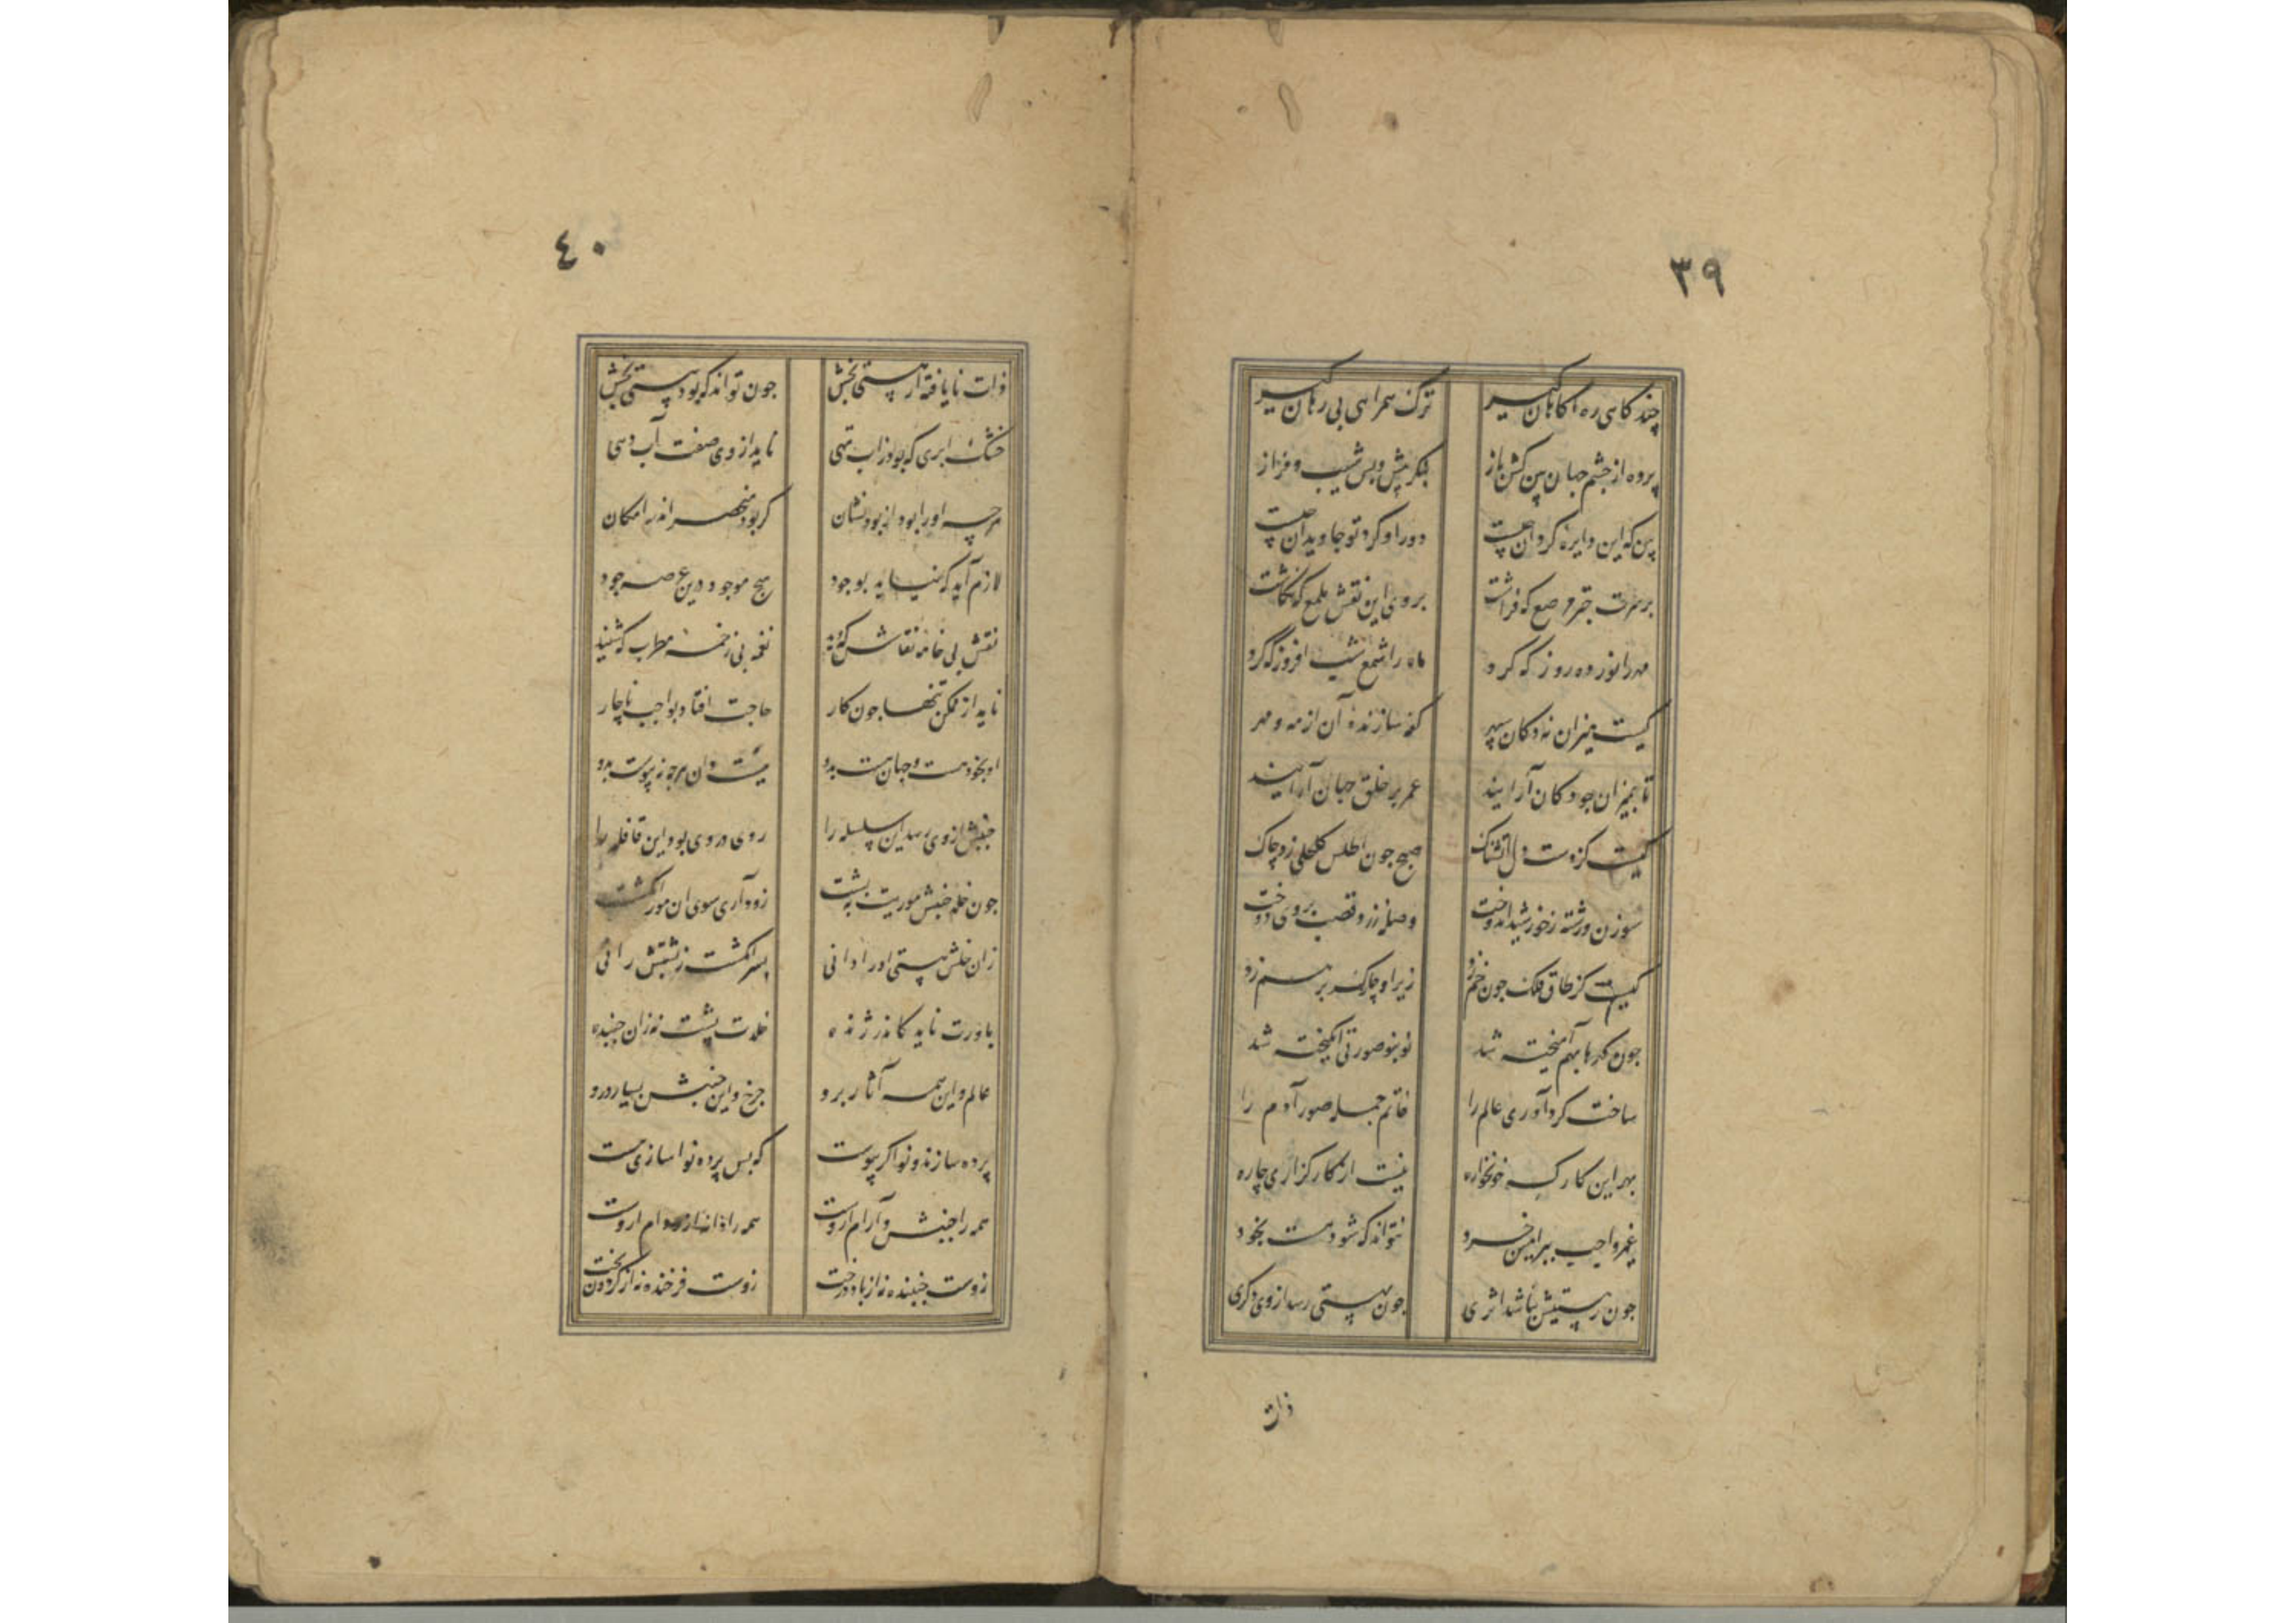 ٣٩
چند کامی ره آکاهان کیر ترک همراهی بی رهان کیر
پرده از چشم جهان بین کن باز بنکر پیش و پس شیب و فراز
بین که این دایره کردان چیست دور او کرد تو جاویدان چیست
بر سرت چتر مرصع که فراشت بر وی این نقش ملمع که نکاشت
مهر را نور ده روز که کرد ماه را شمع شب افروز که کرد
کیست میزان نه دکان سپهر کفه سازنده آن از مه و مهر
تا بمیزان چو دکان آرایند عمر بر خلق جهان آرایند
کیست کز وست دل آتشناک صبح چون اطلس کحلی زد چاک
سوزن و رشته ز خورشید اندوخت وصله زرد و قصب بر وی دوخت
کیست کز طاق فلک چون خم زد زیر او چار کهر بر هم زد
چون کهرها بهم آمیخته شد نو بنو صورتی انکیخته شد
ساخت کرد آوری عالم را خاتم جمله صور آدم را
بهر این کارکه خونخواره نیست از کارکزاری چاره
غیر واجب ببر اینس خرد نتواند که شود هست بخود
چون ز هستیش نباشد اثری چون بهستی رسد از وی دکری
ذات
٤٠
ذات نایافته از هستی بخش چون تواند که بود هستی بخش
خشک ابری که بود ز آب تهی ناید از وی صفت آب دهی
هر چه او را بود از بود نشان کر بود منحصر اندر امکان
لازم آید که نیاید بوجود هیچ موجود درین عرصه جود
نقش بی خامه نقاش که دید نغمه بی زخمه مطرب که شنید
ناید از ممکن تنها چون کار حاجت افتاد بواجب ناچار
او بخود هست و جهان هست بدو نیست دان هر چه نه پیوست بدو
جنبش از وی رسد این سلسله را روی در وی بود این قافله را
چون خلد جنبش موریت به پشت زود آری سوی آن مور انکشت
زان خلش هستی او را دانی بسر انکشت ز پشتش رانی
باورت ناید کاندر ژنده خلدت پشت نه زان جنبنده
عالم و این همه آثار برو چرخ و این جنبش بسیار درو
پرده سازند و نواکر پیوست که پس پرده نواسازی هست
همه را جنبش و آرام ازوست همه را دانه ازو دام ازوست
زوست جنبنده نه از باد درخت زوست فرخنده نه از کردون بخت